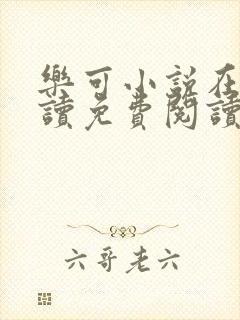 樂可小說在
讀免費閱讀
六哥老六